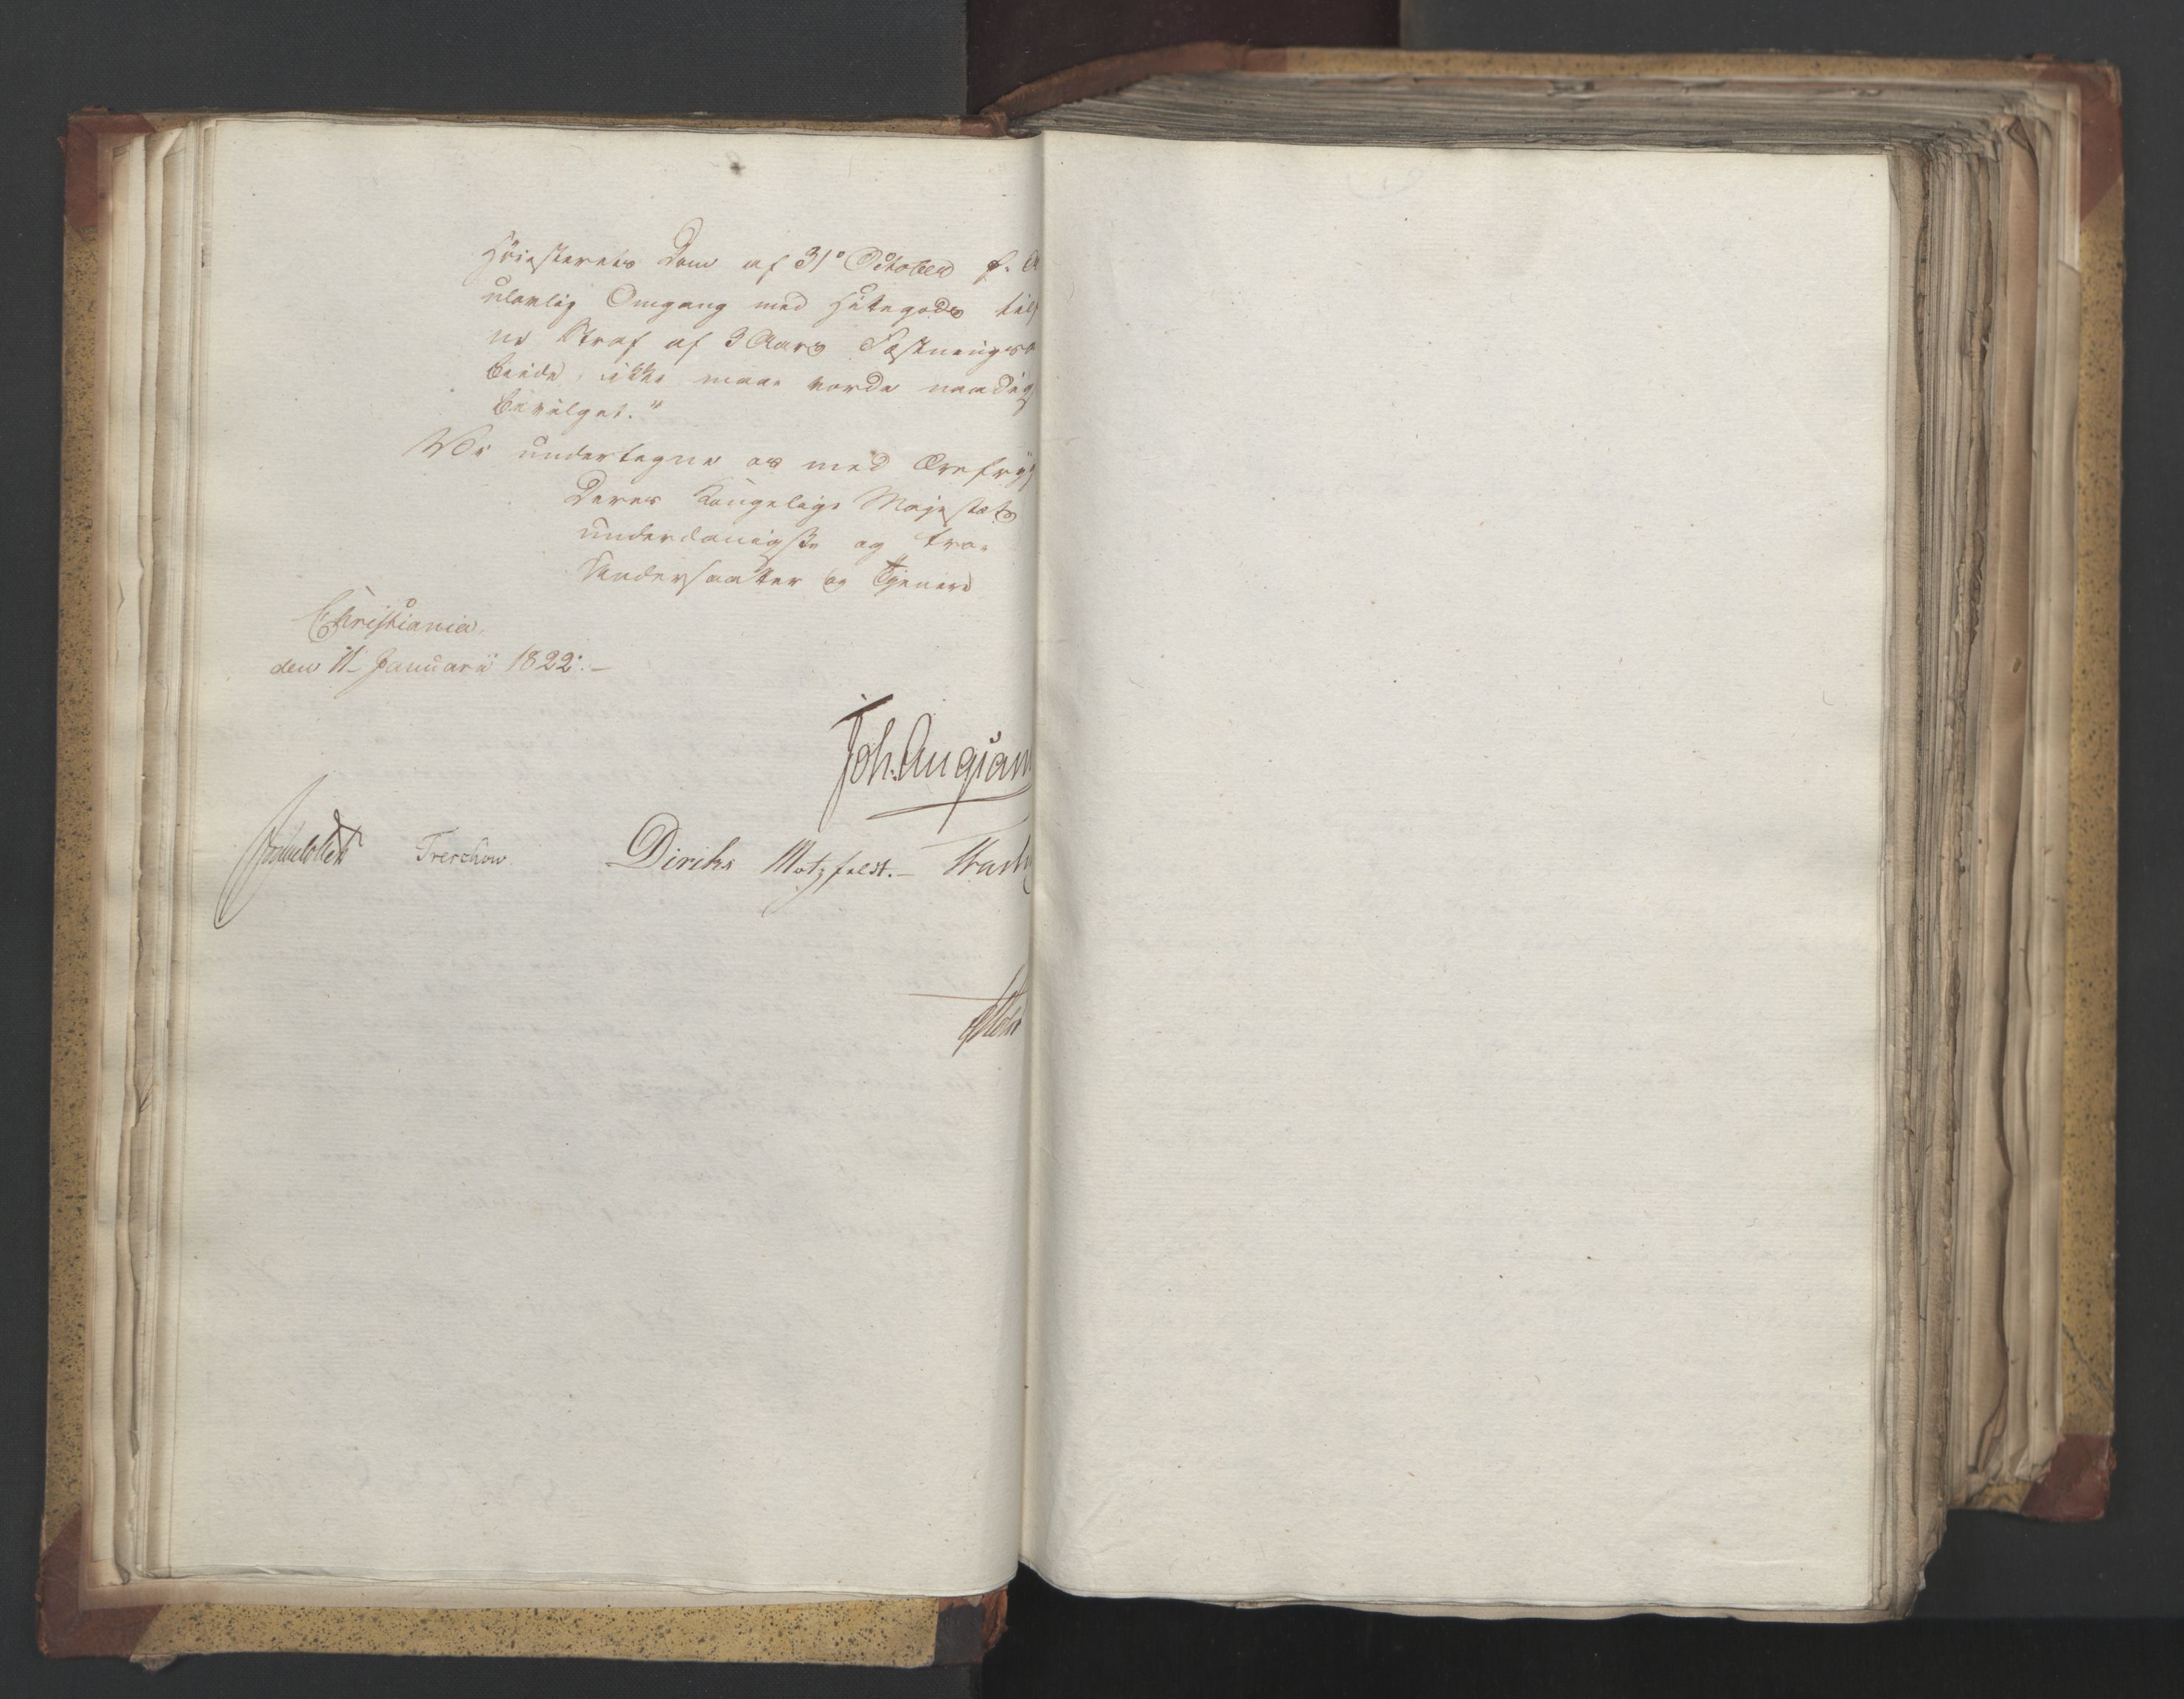 Höiesterets Dom af 31 October f. A
ulovlig Omgang med Hitegods til
ne Straf af 3 Aars Fæstnings
beide, ikke maae vorde naadig
bevilget."
Vi undertegne os med Ærefry
Deres Kongelige Majestæts
underdanigste og troe
Undersaatter og Tjenere
Christiania,
den 11 Januarii 1822.
Joh. Aug San
Sommerhielm Treschow Diriks Motzfeldt.